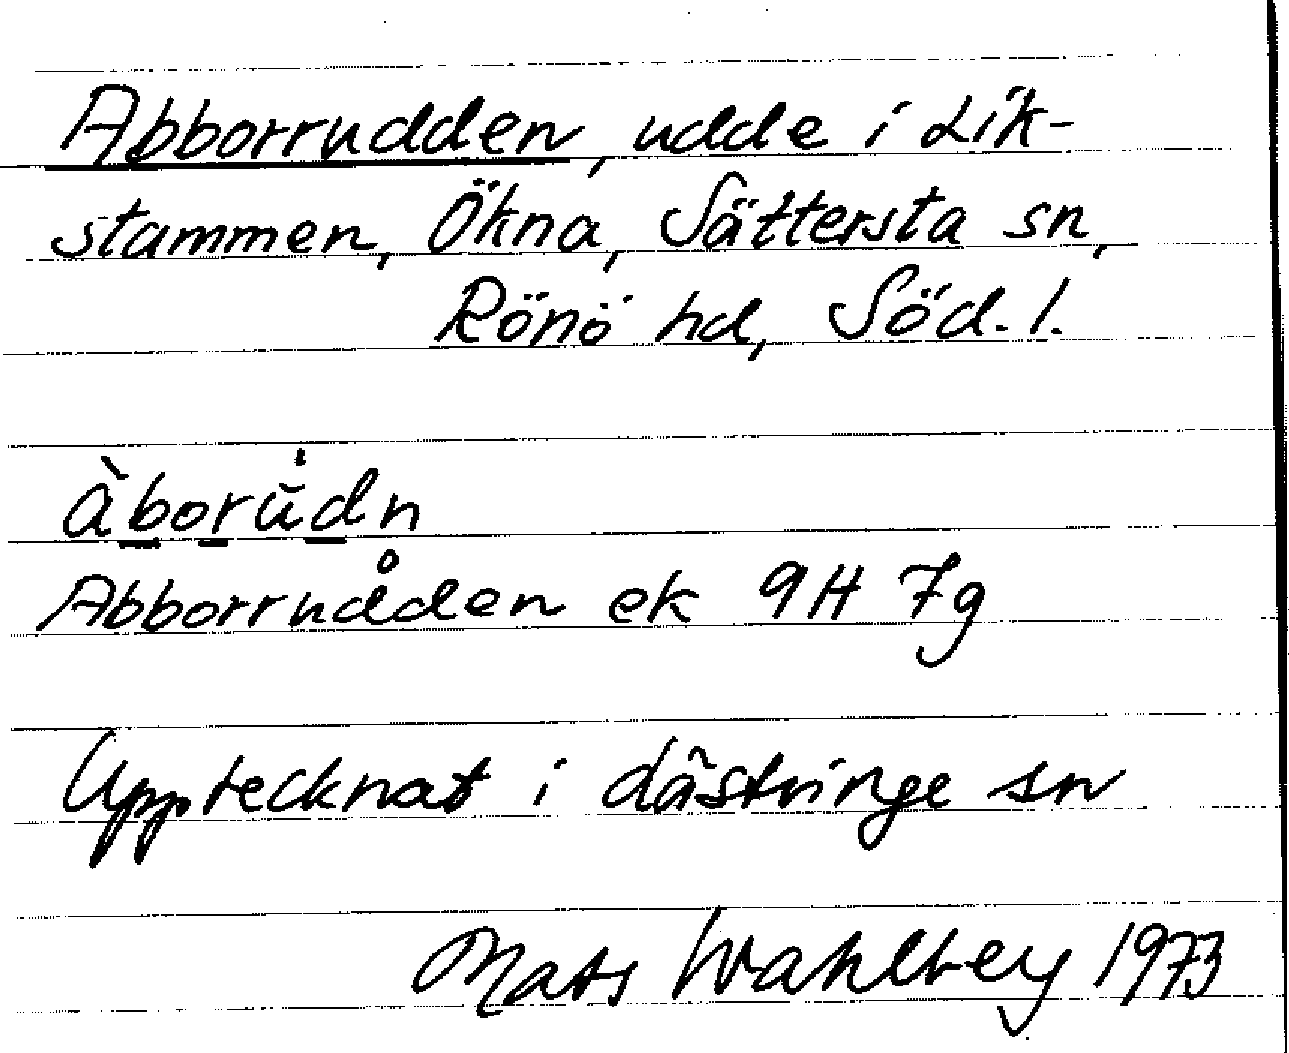 Abborrudden, udde i Lik-
stammen, Ökna, Sättersta sn,
Rönö hd, Söd. l.
àborŭ̇dn
Abborrudden ek 9H 7g
Upptecknat i Lästringe sn
Mats Wahlberg 1973